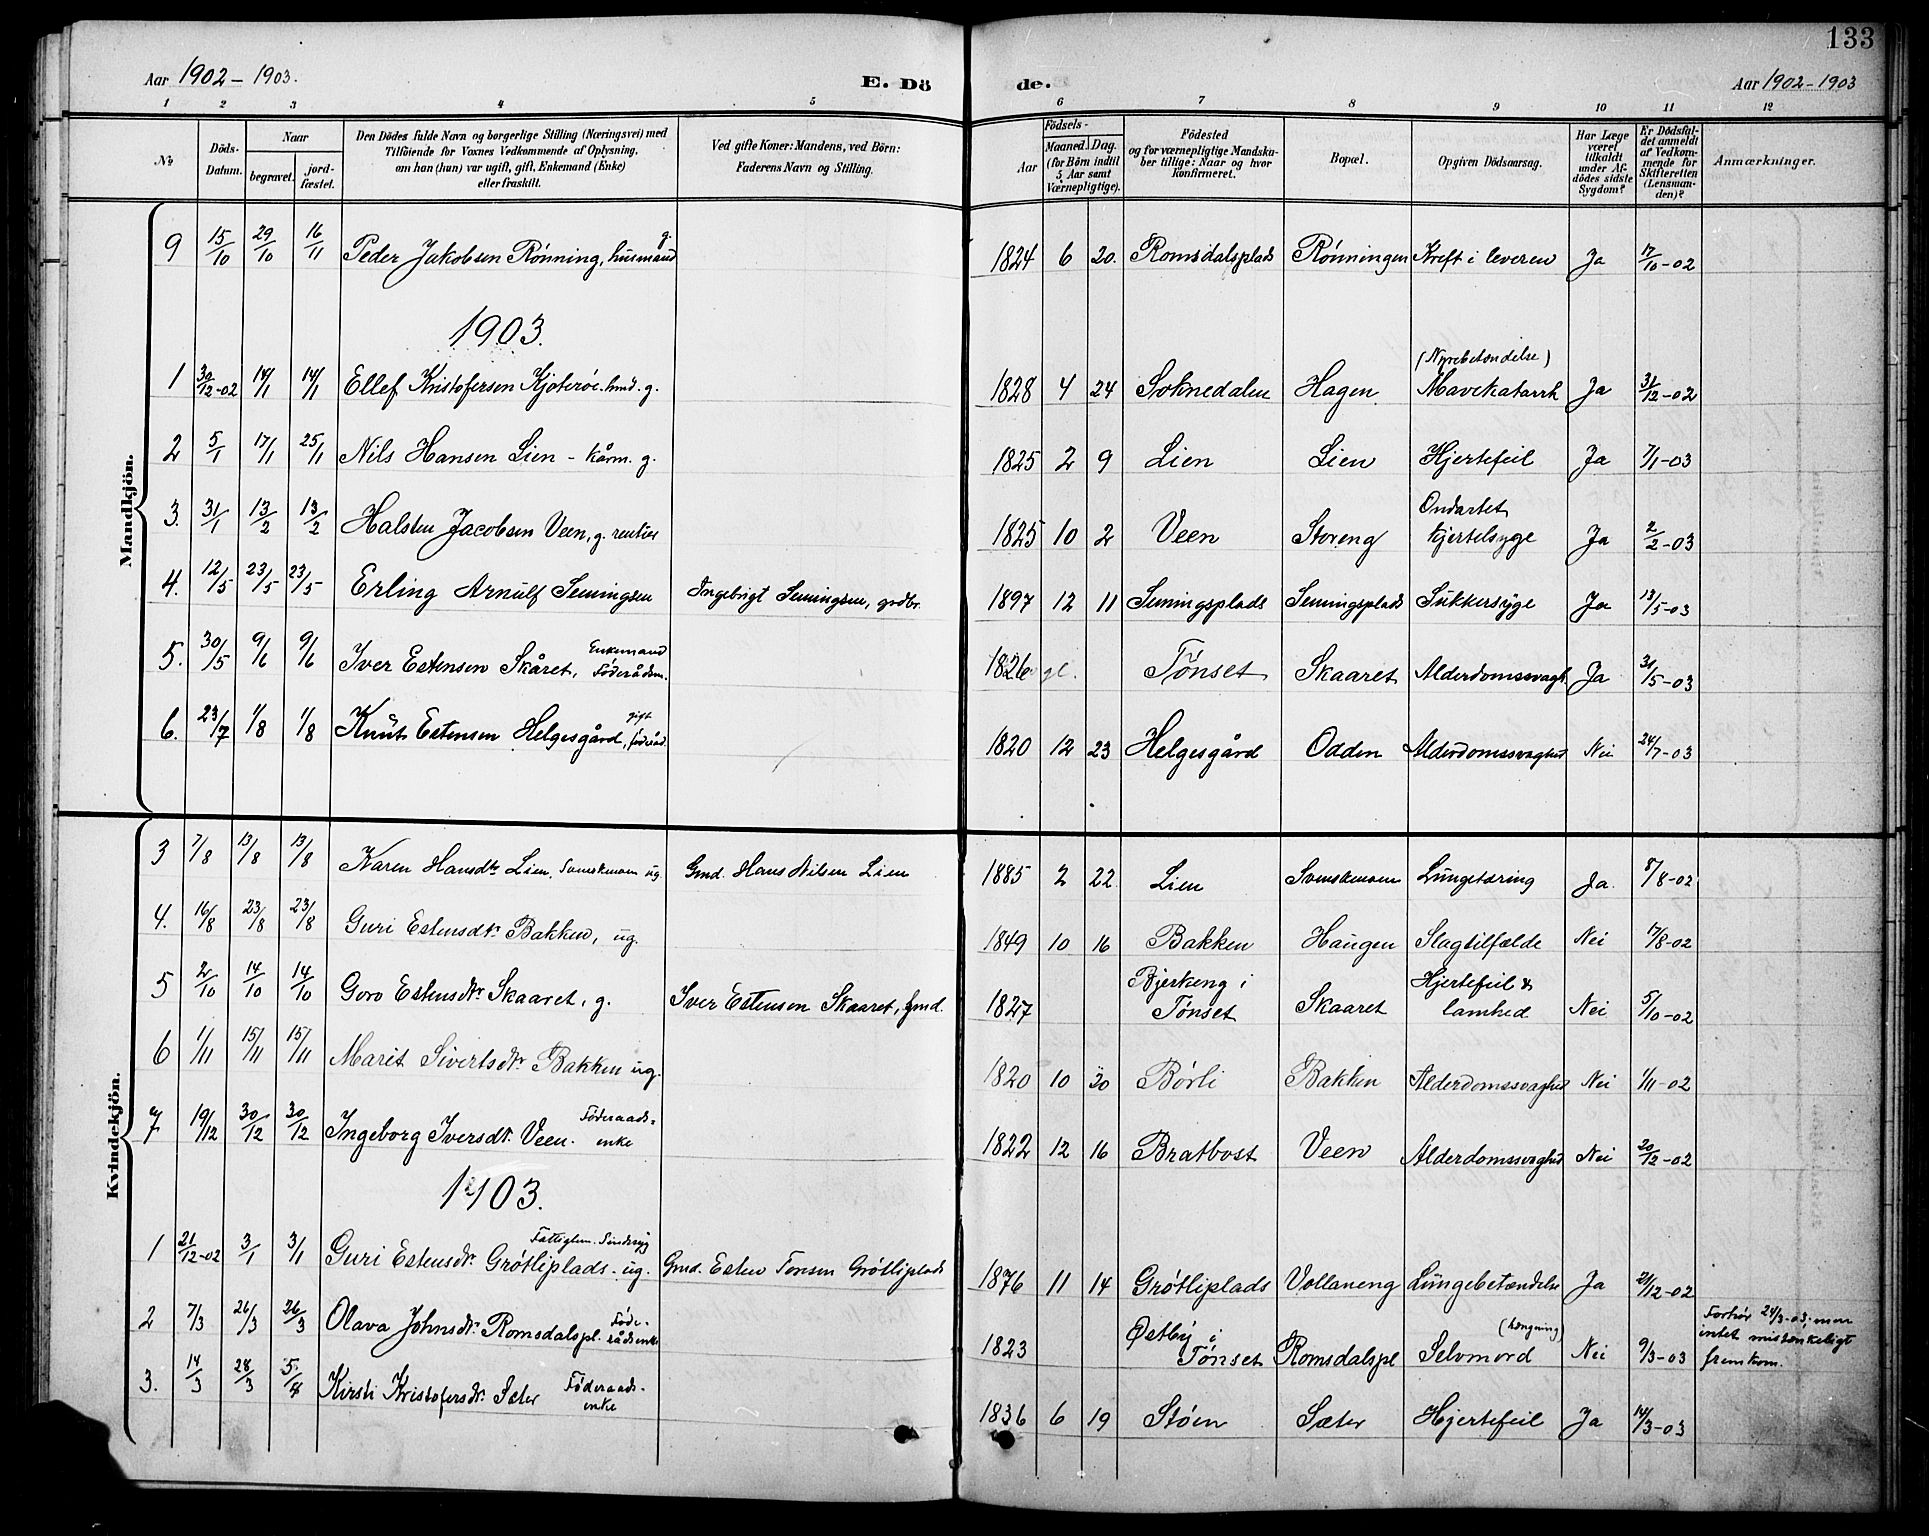 133
Aar 1902 - 1903.
E. Dö
de.
Aar 1902 - 1903
1 2 3 4 5 6 7 8 9 10 11 12
No
Döds-Datum.
Naar
begravet.
jord-fæstet.
Den Dödes fulde Navn og borgerlige Stilling (Næringsvei) med
Tilföiende for Voxnes Vedkommende af Oplysning,
om han (hun) var ugift, gift, Enkemand (Enke)
eller fraskilt.
Ved gifte Koner: Mandens, ved Börn:
Faderens Navn og Stilling.
Födsels-
Aar
Maaned. Dag.
(for Börn indtil
5 Aar samt
Værnepligtige).
Födested
og for værnepligtige Mandska-
ber tillige: Naar og hvor
konfirmeret.
Bopæl.
Opgiven Dödsaarsag.
Har Læge
været
tilkaldt
under Af-
dödes sidste
Sygdom?
Er Dödsfal-
det anmeldt
af Vedkom-
mende for
Skifteretten
(Lensman-
den)?
Anmærkninger.
Mandkjön.
9 15/10 29/10 16/11 Peder Jakobsen Rönning, husmand g. 1824 6 20 Romsdalsplads Rönningen Kreft i leveren Ja 17/10-02
1903.
1 30/12-02 14/1 14/1 Ellef Kristofersen Kjoteröe. hmd. g. 1828 4 24 Soknedalen Hagen (Nyrebetændelse) Mavekatarrh Ja 31/12-02
2 5/1 17/1 25/1 Nils Hansen Lien - kårm. g. 1825 2 9 Lien Lien Hjertefeil Ja 7/1-03
3. 31/1 13/2 13/2 Halsten Jacobsen Veen, g. rentier 1825 10 2 Veen Storeng Ondartet kjertelsyge Ja 2/2-03
4. 12/5 23/5 23/5 Erling Arnulf Semingsen Ingebrigt Semingsen, grdbr. 1897 12 11 Semingsplads Semingsplads Sukkersyge Ja 13/5-03
5. 30/5 9/6 9/6 Iver Estensen Skåret, Enkemand Föderådsm. 1826 gl. Tönset Skaaret Alderdomssvagh. Ja 31/5-03
6. 23/7 1/8 1/8 Knut Estensen Helgesgård, gift föderåd. 1820 12 23 Helgesgård Odden Alderdomssvaghed Nei 24/7-03
Kvindekjön.
3 7/8 13/8 13/8 Karen Hansdtr Lien, Svenskmoen ug. Gmd. Hans Nilsen Lien 1885 2 22 Lien Svenskmoen Lungetæring Ja. 8/8-02
4. 16/8 23/8 23/8 Guri Estensdtr Bakken, ug. 1849 10 16 Bakken Haugen Slagtilfælde Nei 17/8-02
5 2/10 14/10 14/10 Goro Estensdtr Skaaret, g. Iver Estensen Skaaret, Gmd. 1827 Bjerkeng i Tönset Skaaret Hjertefeil & lamhed Nei 5/10-02
6 1/11 15/11 15/11 Marit Sivertsdtr Bakken ug. 1820 10 30 Börli Bakken Alderdomssvaghed Nei 1/11-02
7 19/12 30/12 30/12 Ingeborg Iversdtr Veen. Föderaads-enke 1822 12 16 Bratbost Veen Alderdomssvaghed Nei 20/12-02
1903.
1 21/12-02 3/1 3/1 Guri Estensdtr Grötliplads - ug. Fattiglem. Sindssyg Gmd. Esten Tonsen Grötliplads 1876 11 14 Grötliplads Vollaneng Lungebetændelse Ja 21/12-02
2 7/3 26/3 26/3 Olava Johnsdtr Romsdalspl. Föde-rådsenke 1823 Östby i Tönset Romsdalspl (hængning) Selvmord Nei 9/3-03 Forhör 24/3-03, men intet mistænkeligt fremkom.
3. 14/3 28/3 5/4 Kirsti Kristofersdtr Sæter Föderaads-enke 1836 6 19 Stöen Sæter Hjertefeil Ja 14/3-03